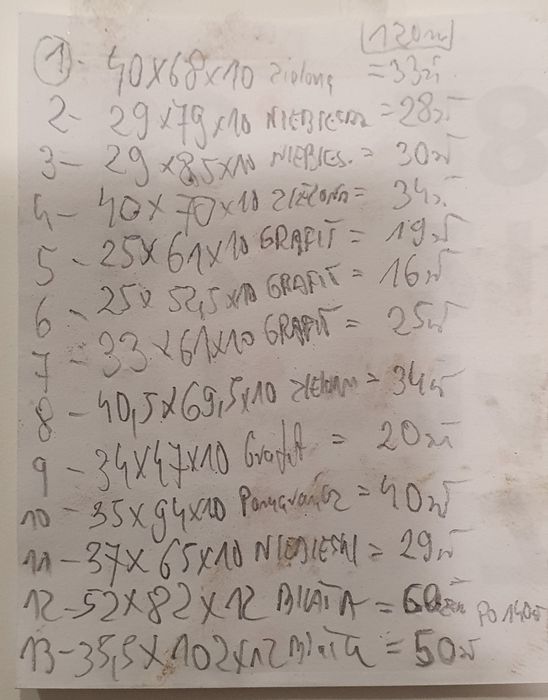 120zł
1- 40x68x10 zielona =33zł
2- 29x79x10 NIEBIESKA =28zł
3- 29x85x10 NIEBIES. = 30zł
4- 40x70x10 ZIELONA= 34zł
5- 25x61x10 GRAFIT = 19zł
6- 25x52,5x10 GRAFIT = 16zł
7- 33x61x10 GRAFIT = 25zł
8- 40,5x69,5x10 = 34zł
9- 34x47x10 Grafit = 20zł
10- 35x94x10 = 40zł
11- 37x65x10 NIEBIESKI = 29zł
12-52x82x12 BIAŁA = 60zł PO 140zł
13-35,5x102x12 Biała = 50zł